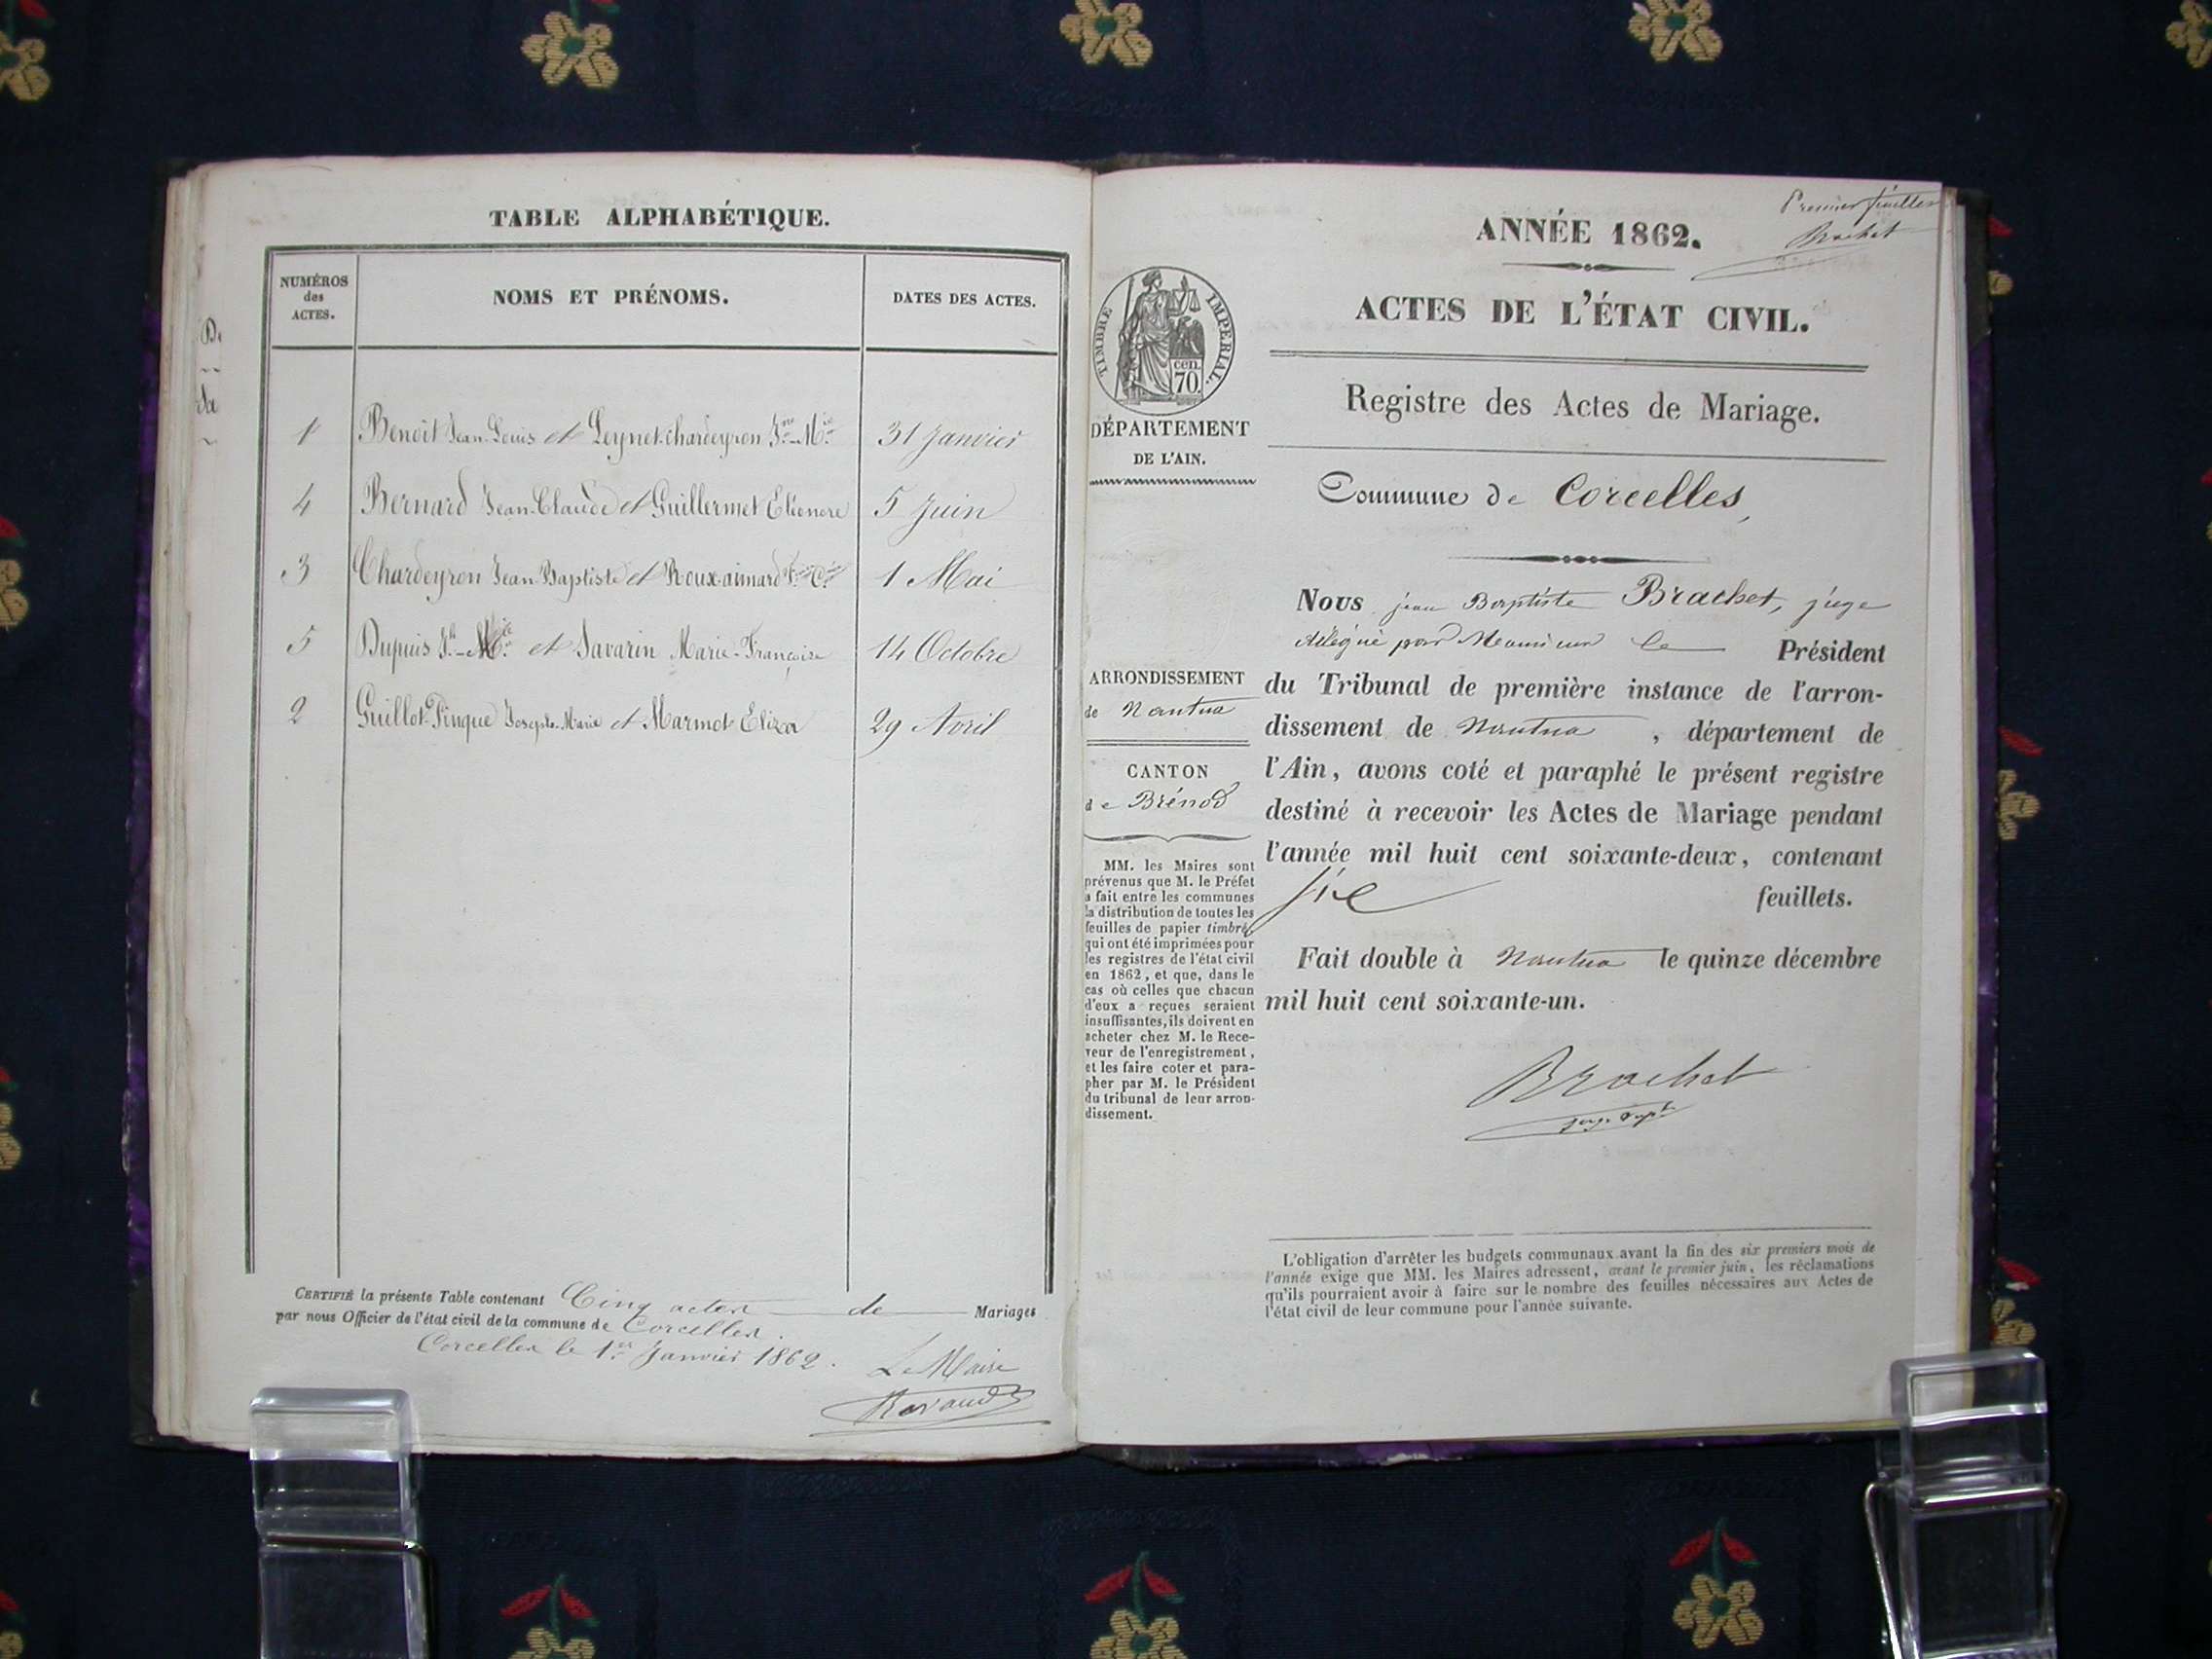 TABLE ALPHABÉTIQUE.
NUMÉROS
des
ACTES.
NOMS ET PRÉNOMS.
DATES DES ACTES.
1 Benoit Jean-Louis et Leynet-chardeyron Fse-Mie 31 Janvier
4 Bernard Jean-Claude et Guillermet Eléonore 5 Juin
3 Chardeyron Jean-Baptiste et Roux-aimard 1 Mai
5 Dupuis Jh-Mie et Savarin Marie-Françoise 14 Octobre
2 Guillot-Pinque Joseph-Marie et Marmot Eliza 29 Avril
CERTIFIÉ la présente Table contenant Cinq actes de Mariages
par nous Officier de l'état civil de la commune de Corcelles.
Corcelles le 1er Janvier 1862.
Le Maire
Ravaud
Premier feuillet
Brachet
ANNÉE 1862.
TIMBRE IMPÉRIAL.
cen.
70.
ACTES DE L'ÉTAT CIVIL.
Registre des Actes de Mariage.
DÉPARTEMENT
DE L'AIN.
Commune de Corcelles,
Nous jean Baptiste Brachet, juge
délégué par Monsieur le Président
du Tribunal de première instance de l'arron-
dissement de Nantua, département de
l'Ain, avons coté et paraphé le présent registre
destiné à recevoir les Actes de Mariage pendant
l'année mil huit cent soixante-deux, contenant
six feuillets.
Fait double à Nantua le quinze décembre
mil huit cent soixante-un.
Brachet
ARRONDISSEMENT
de Nantua
CANTON
de Brénod
MM. les Maires sont
prévenus que M. le Préfet
a fait entre les communes
la distribution de toutes les
feuilles de papier timbré,
qui ont été imprimées pour
les registres de l'état civil
en 1862, et que, dans le
cas où celles que chacun
d'eux a reçues seraient
insuffisantes, ils doivent en
acheter chez M. le Rece-
veur de l'enregistrement,
et les faire coter et para-
pher par M. le Président
du tribunal de leur arron-
dissement.
L'obligation d'arrêter les budgets communaux avant la fin des six premiers mois de
l'année exige que MM. les Maires adressent, avant le premier juin, les réclamations
qu'ils pourraient avoir à faire sur le nombre des feuilles nécessaires aux Actes de
l'état civil de leur commune pour l'année suivante.